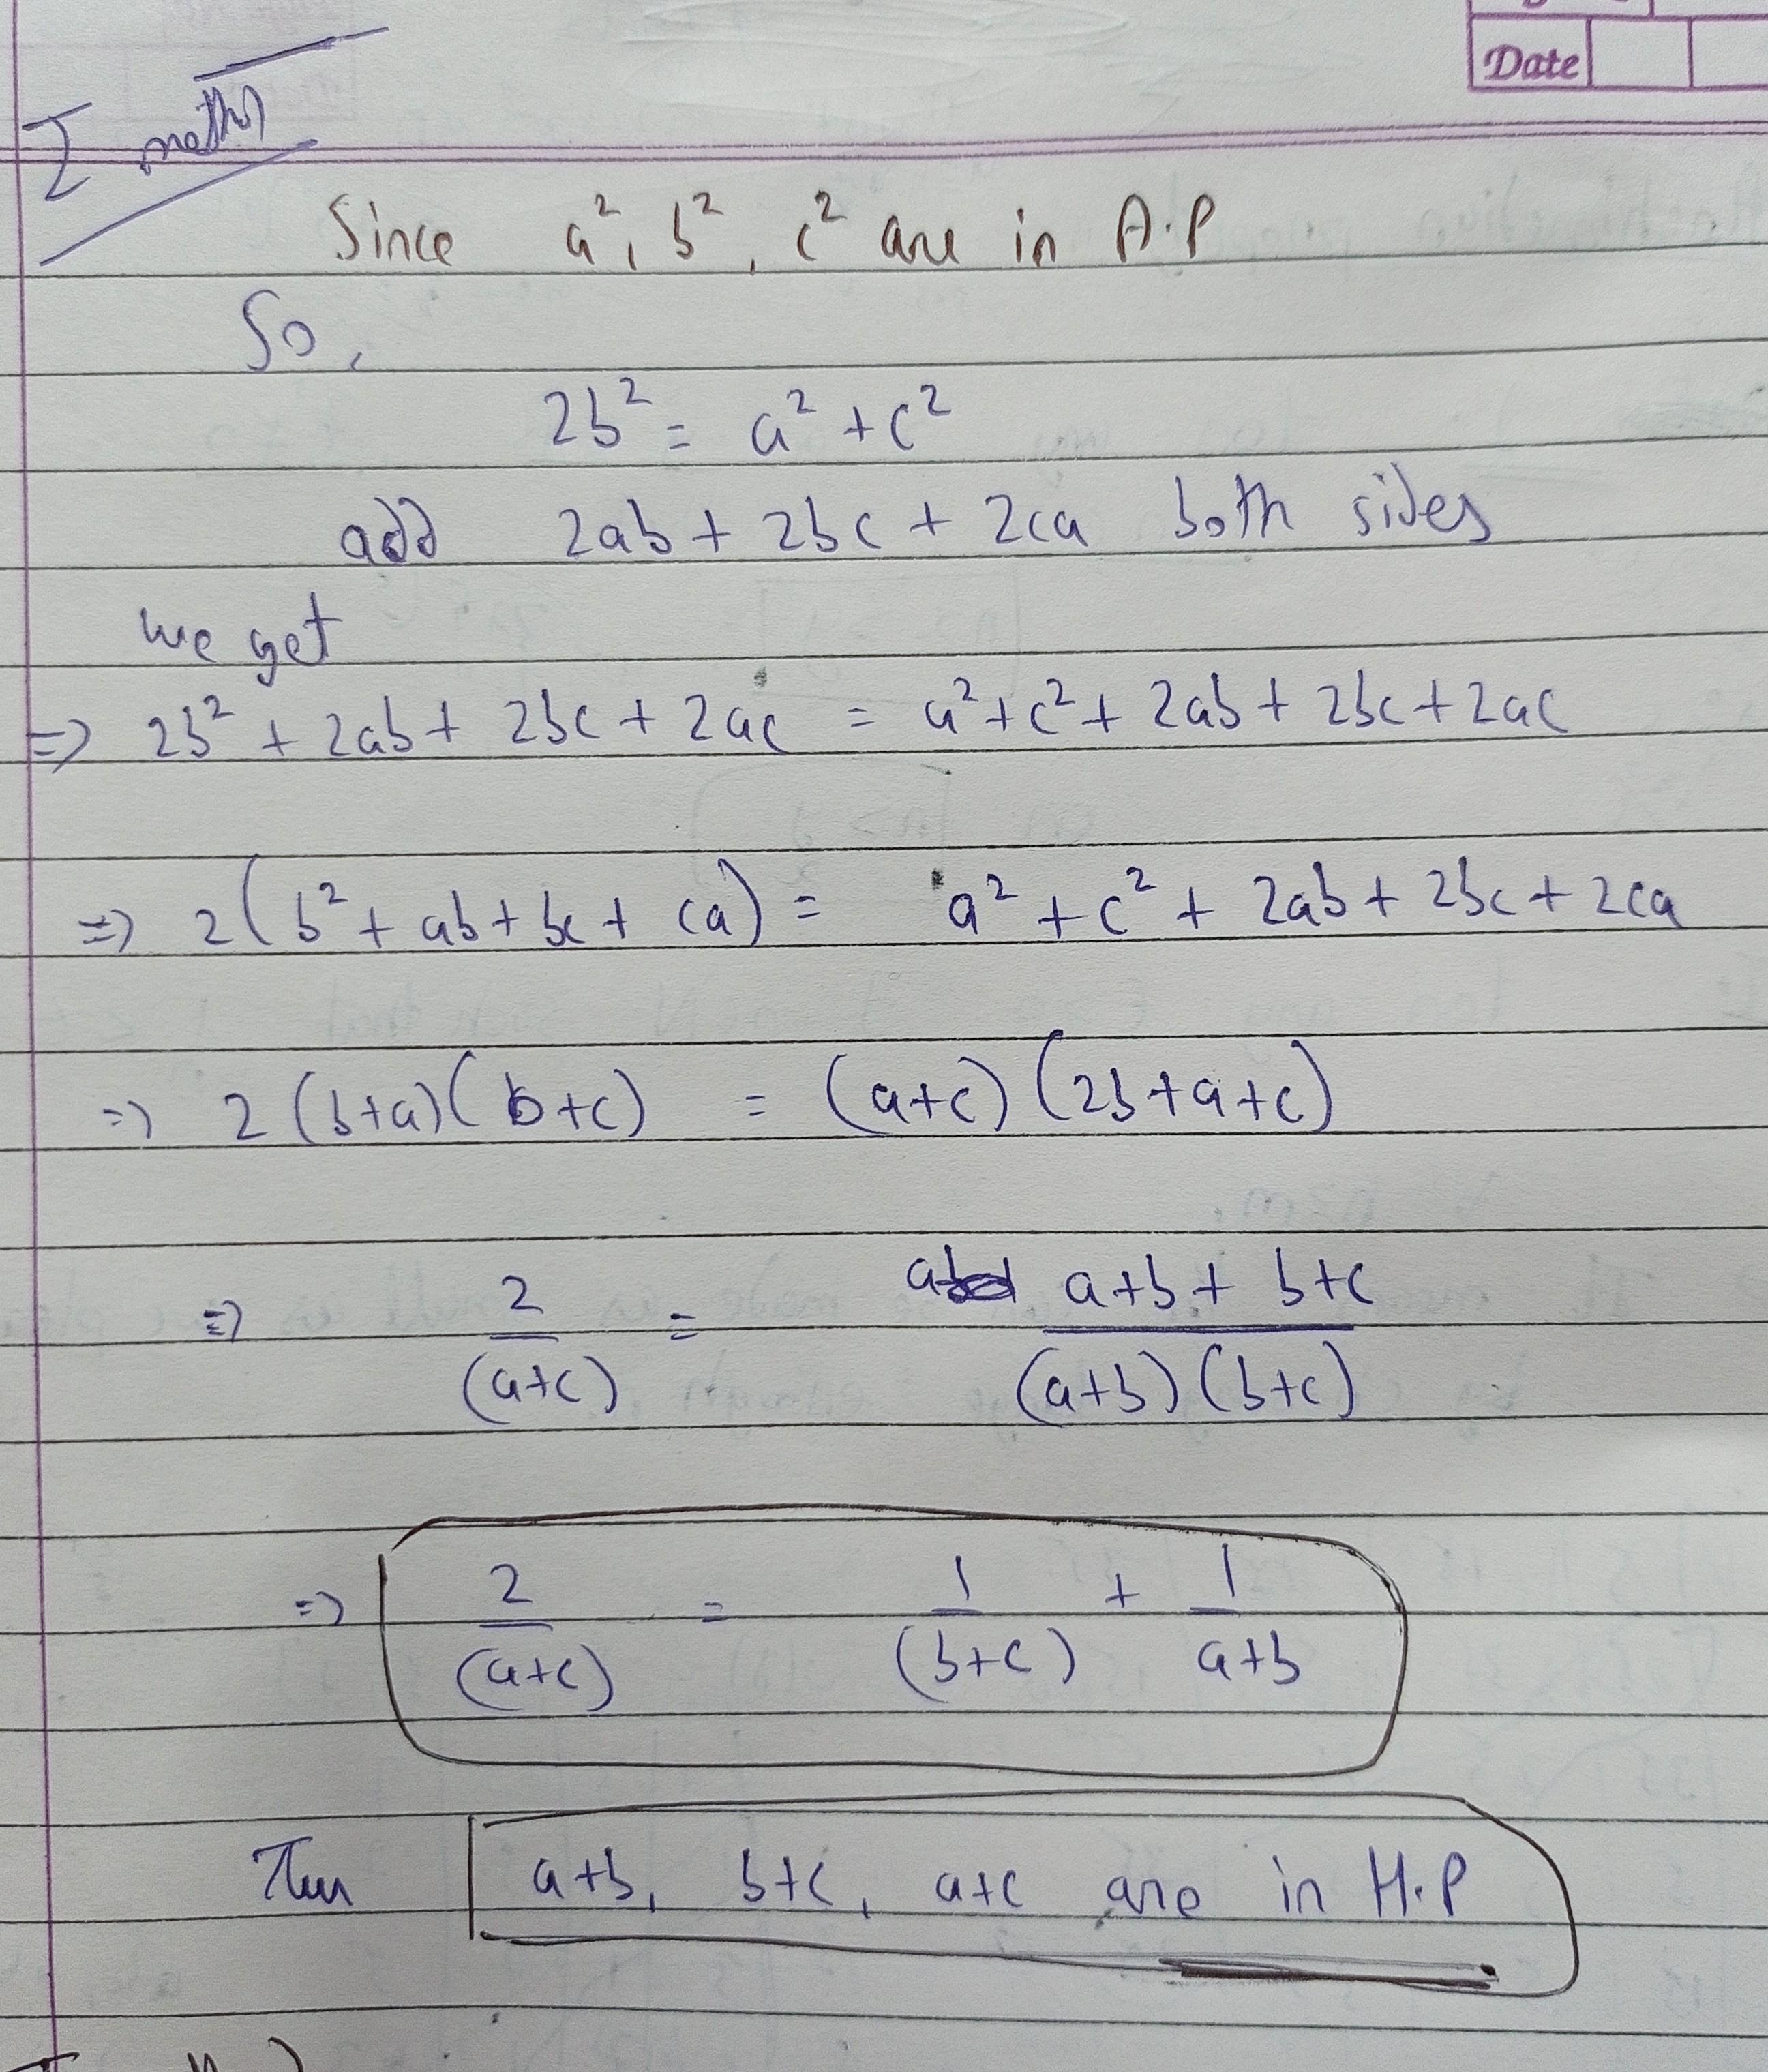 Date
I meth
Since a², b², c² are in A.P
So,
2b² = a² + c²
add 2ab + 2bc + 2ca both sides
we get
=> 2b² + 2ab + 2bc + 2ac = a² + c² + 2ab + 2bc + 2ac
=> 2(b² + ab + bc + ca) = a² + c² + 2ab + 2bc + 2ca
=> 2(b+a)(b+c) = (a+c)(2b+a+c)
=> 2/(a+c) = (a+b + b+c)/((a+b)(b+c))
=> 2/(a+c) = 1/(b+c) + 1/(a+b)
Then a+b, b+c, a+c are in H.P